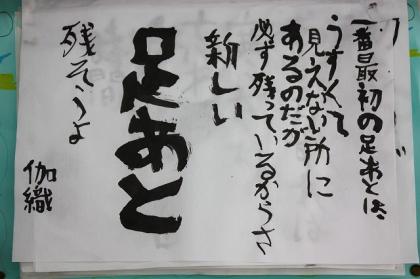 一番最初の足あとは、
うすくて
見えない所に
あるのだが
必ず残っているからさ
新しい
足あと
残そうよ
伽織